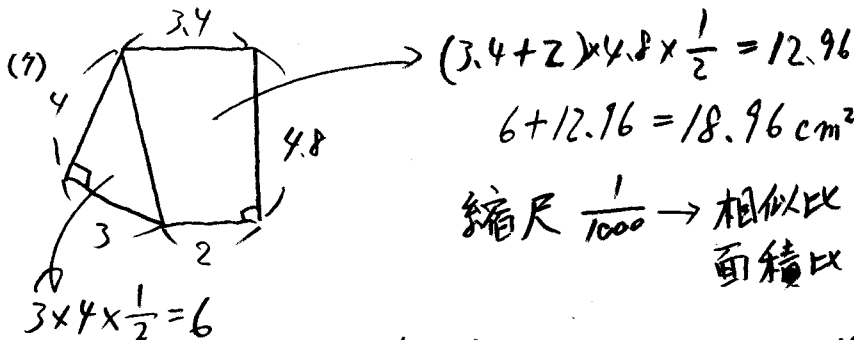 (7)
3.4
4
4.8
3
2
3×4×1/2=6
(3.4+2)×4.8×1/2=12.96
6+12.96=18.96cm²
縮尺 1/1000→相似比
面積比